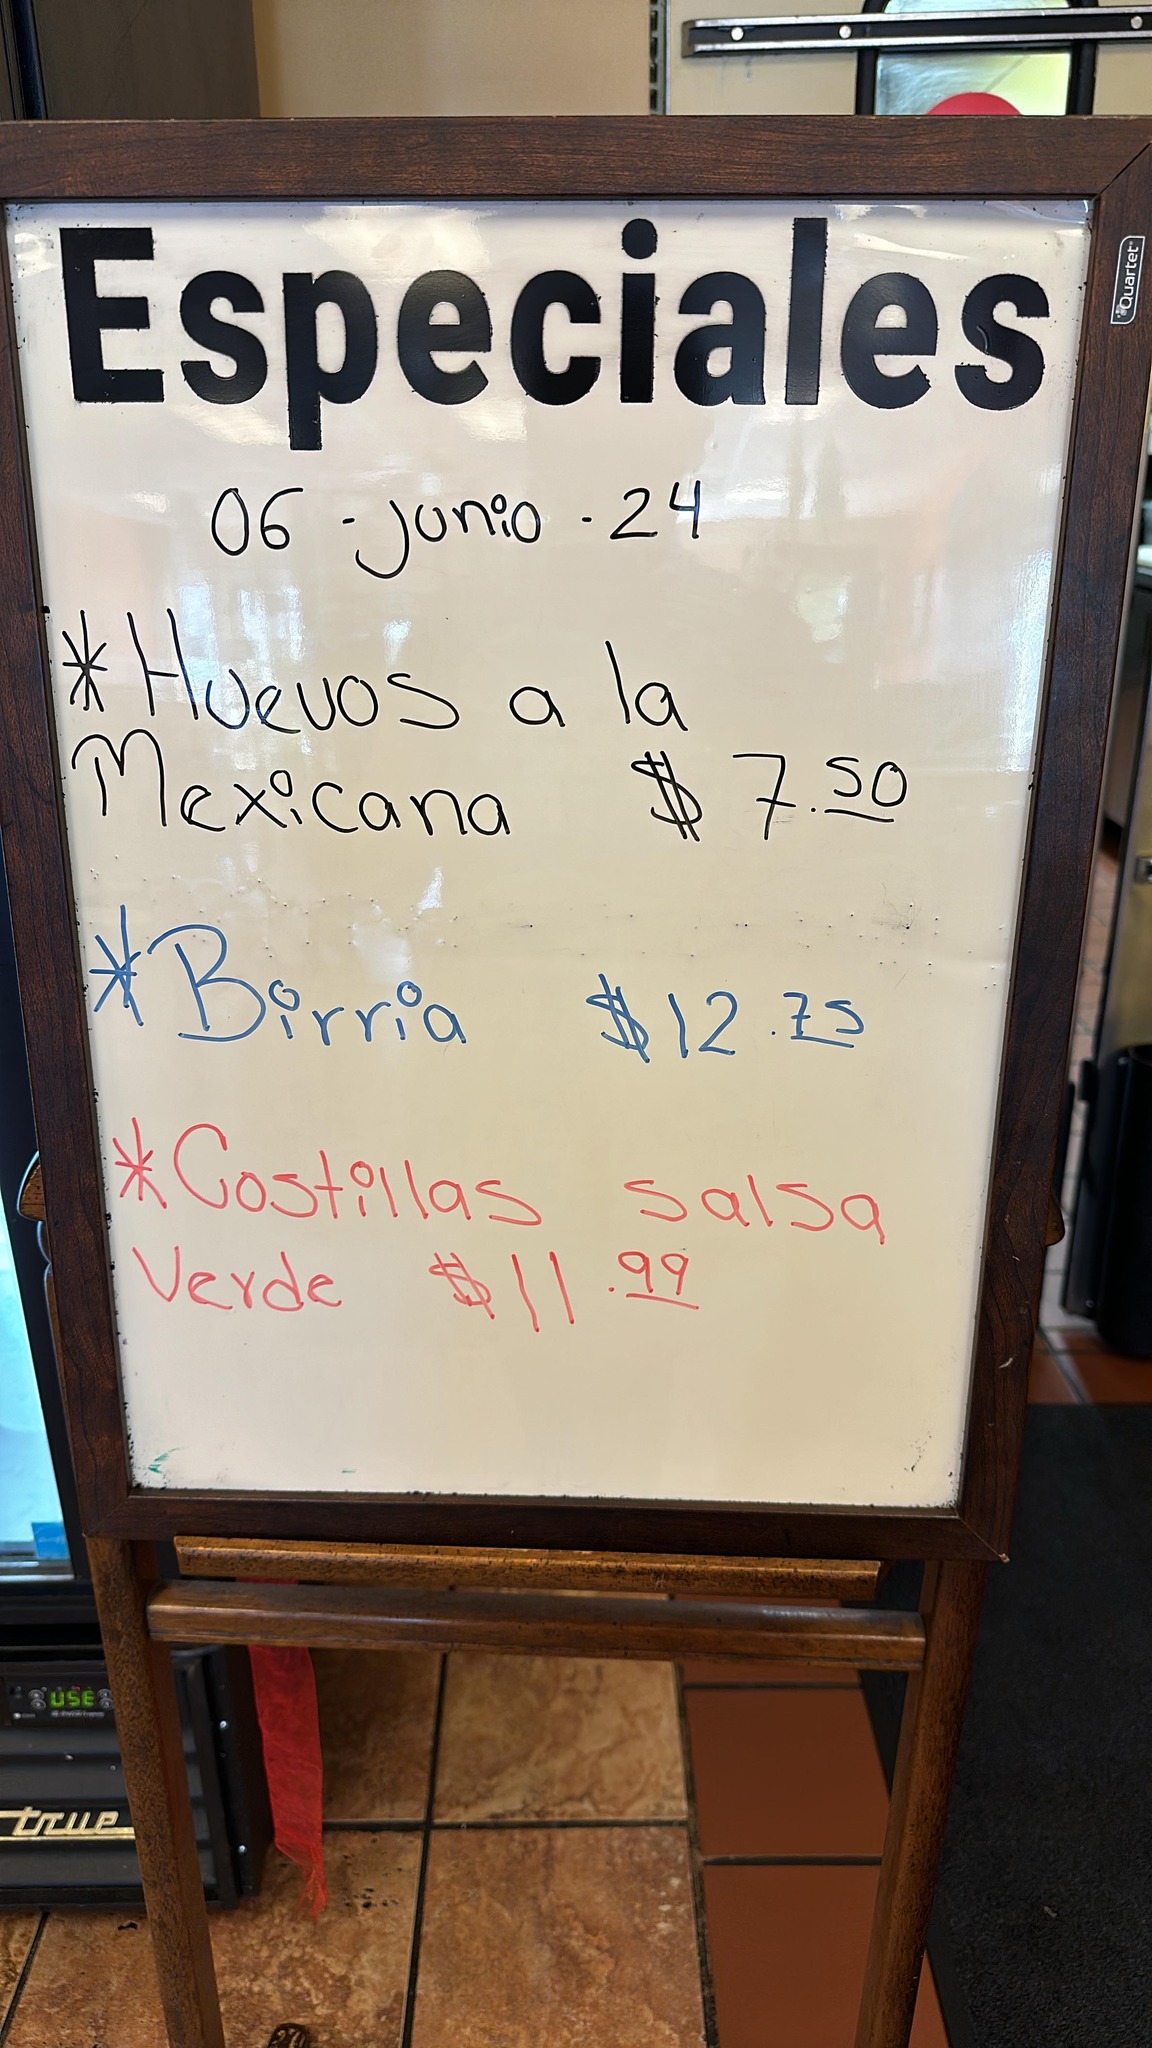 Especiales
Quartet
06 - junio - 24
* Huevos a la
Mexicana $ 7.50
* Birria $12.75
* Costillas salsa
Verde $11.99
USE
true